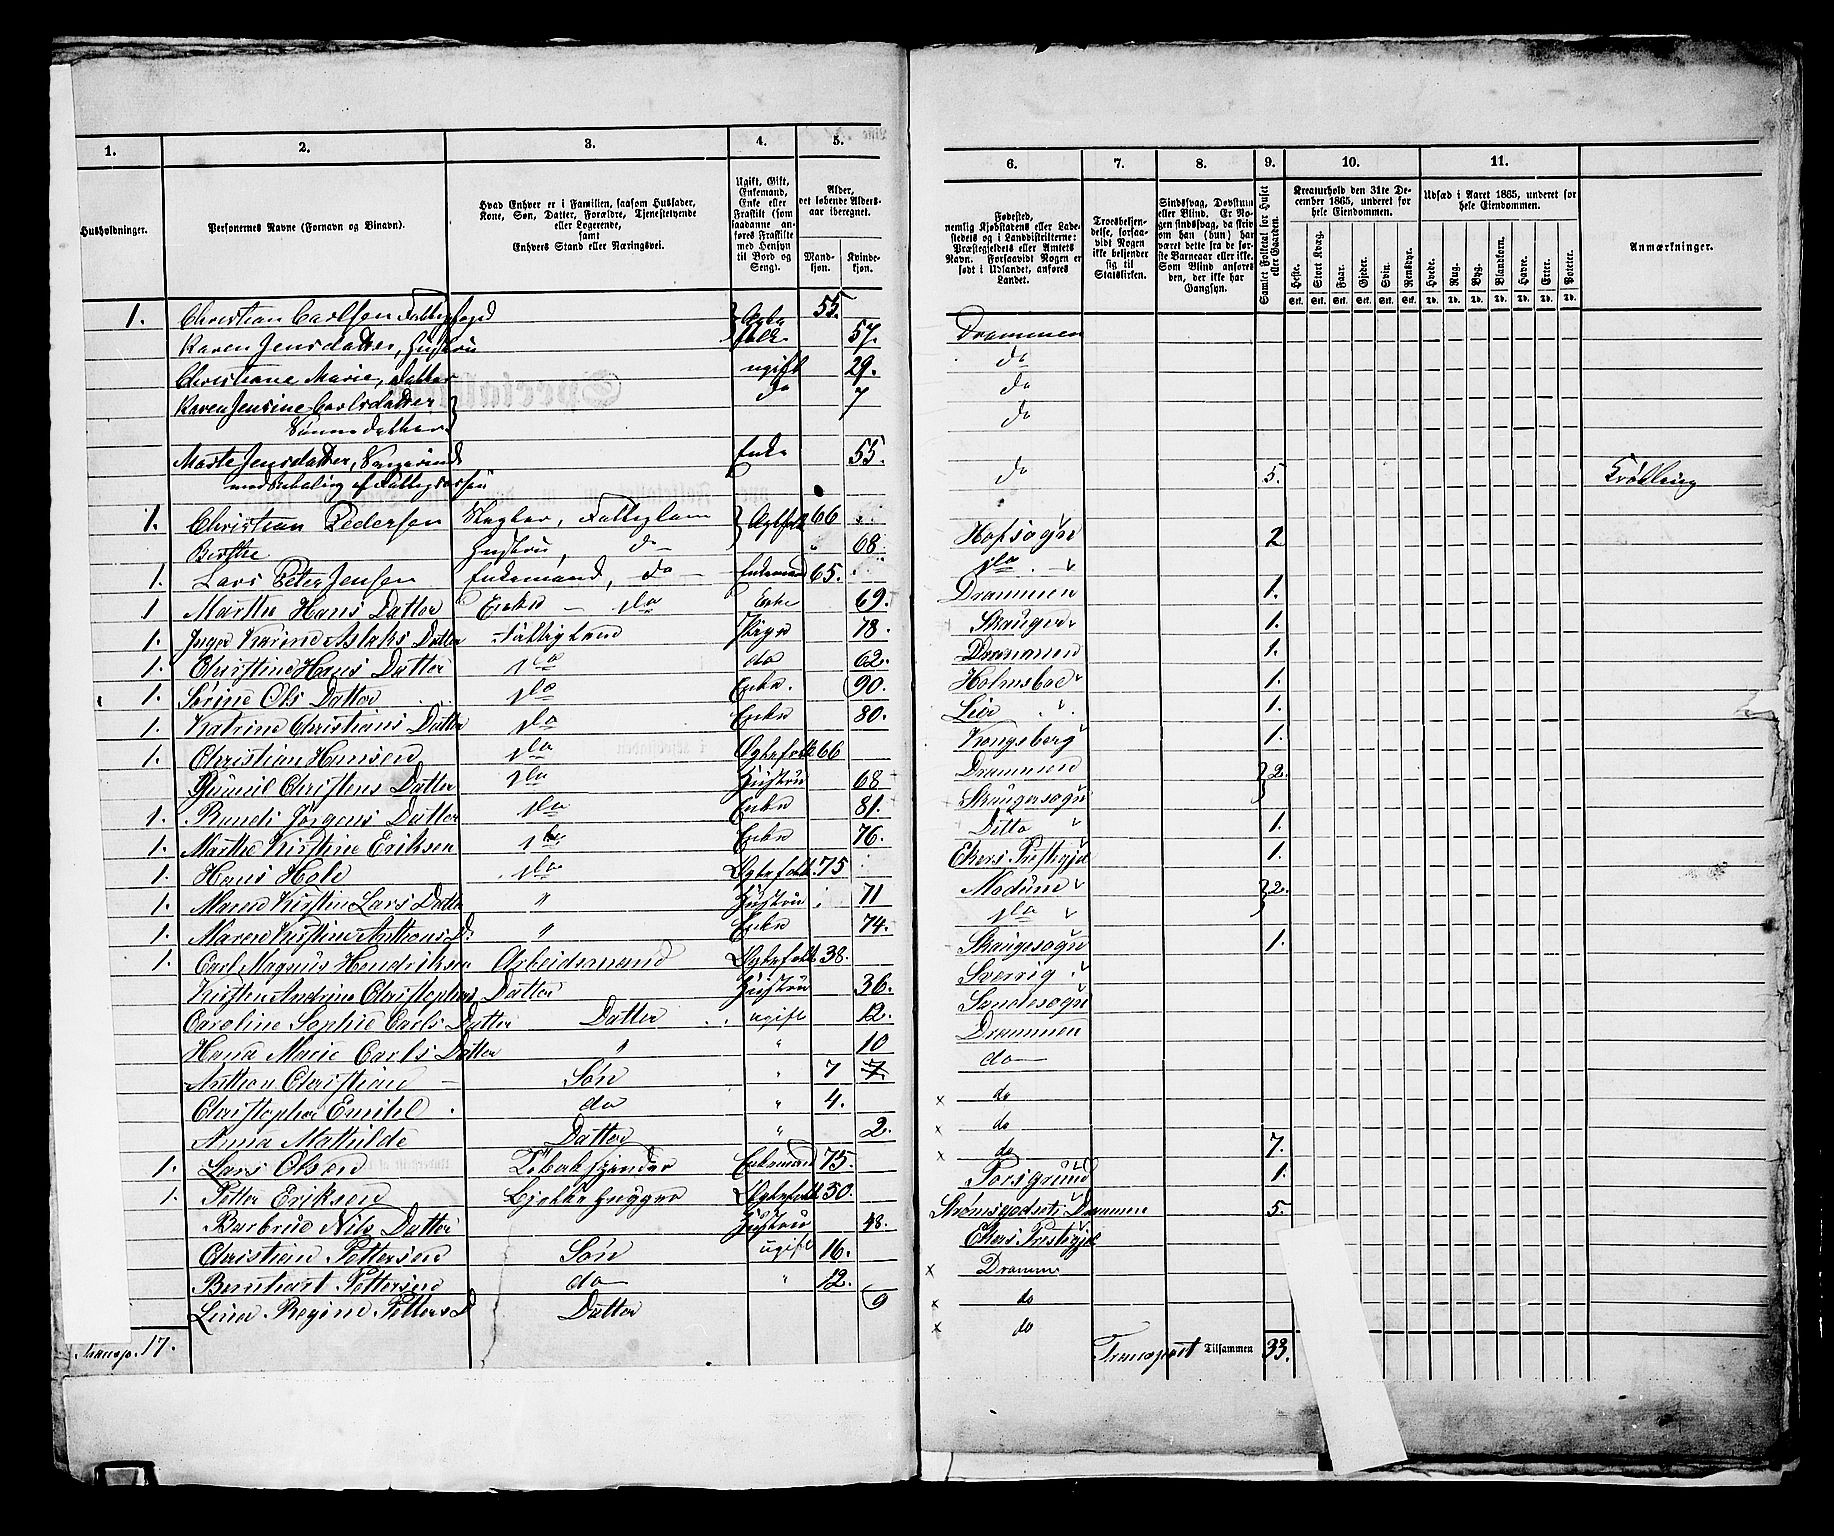 1.
2.
3.
4.
5.
Husholdninger.
Personernes Navne (Fornavn og Binavn).
Hvad Enhver er i Familien, saasom Husfader,
Kone, Søn, Datter, Forældre, Tjenestetyende
eller Logerende,
samt
Enhvers Stand eller Næringsvei.
Ugift, Gift,
Enkemand,
Enke eller
Fraskilt (som
saadanne an-
føres Fraskilte
med Hensyn
til Bord og
Seng).
Alder,
det løbende Alders-
aar iberegnet.
Mand-
kjøn.
Kvinde-
kjøn.
1. Christian Carlsen Fattigfogd 55.
Karen Jensdatter, Hustru folk 57.
Christiane Marie, Datter ugift 29.
Karen Jensine Carlsdatter do 7
Sønnedatter
Marte Jensdatter, Enke 55.
med Betaling af Fattigkassen
1. Christian Pedersen Fattiglem Ægtfolk 66
Birthe Hustru, do 68
1. Lars Peter Jensen Enkemand, do Enkemand 65.
1 Marthe Hans Datter Enke do Enke 69.
1. Inger Karine Aslaks Datter Fattiglem Pige 78.
1. Christine Hans Datter do do 62.
1. Sørine Ols Datter do Enke. 90.
1. Katrine Christians Datter do Enke 80.
1. Christian Hansen do Ægtefolk 66
Gunnil Christens Datter do Hustru 68
1. Randi Jørgens Datter do Enke 81.
1. Marthe Kirstine Eriksen do Enke 76.
1. Hans Hole do Ægtefolk 75
1. Maren Kirstine Lars Datter " Hustru 71
1. Maren Kirstine Anthons D. " Enke 74.
1. Carl Magnus Hendriksen Arbeidsmand Ægtefolk 38.
Kirsten Andrine Christophers Datter Hustru 36.
Caroline Sophie Carls Datter Datter ugift 12.
Hana Marie Carls Datter " " 10
Anthon Christian Søn " 7 7
Christopher Emihl do " 4.
Anna Mathilde Datter " 2.
1. Lars Olsen Tobakspinder Enkemand 75.
1. Petter Eriksen Ægtefolk 50.
Barbrue Nils Datter Hustru 48.
Christian Pettersen Søn ugift 16.
Bernhart Pettersen do " 12.
Lina Regine Petters D Datter 9
Transp. 17.
6.
7.
8.
9.
10.
11.
Fødested,
nemlig Kjøbstadens eller Lade-
stedets og i Landdistrikterne:
Præstegjeldets eller Amtets
Navn. Forsaavidt Nogen er
født i Udlandet, anføres
Landet.
Troesbekjen-
delse, forsaa-
vidt Nogen
ikke bekjender
sig til
Statskirken.
Sindssvag, Døvstum
eller Blind. Er No-
gen sindssvag, da skri-
ves om han (hun) har
været dette fra de før-
ste Barneaar eller ei.
Som Blind anføres
den, der ikke har
Gangsyn.
Samlet Folketal for Huset
eller Gaarden.
Kreaturhold den 31te De-
cember 1865, underet for
hele Eiendommen.
Heste. Stort Kvæg. Faar. Gjeder. Svin. Rensdyr.
Stk. Stk. Stk. Stk. Stk. Stk.
Udsæd i Aaret 1865, underet for
hele Eiendommen.
Hvede. Rug. Byg. Blandkorn. Havre. Erter. Poteter.
Td. Td. Td. Td. Td. Td. Td.
Anmærkninger.
Drammen
do
do
do
do 5.
Hofsogn 2
do
Drammen 1.
Skauger 1.
Drammen 1.
Holmsboe 1.
Lier 1.
Kongsberg 1.
Drammen 2.
Skaugersogn
Ditto 1.
Ekers Prestegjel 1.
Modum 2.
do
Skaugesogn 1.
Sverrig
Sandesogn
Drammen
do
x do
x do
x do 7.
Porsgrund 1.
Strømsgodset i Drammen 5.
Ekers Prestegjel
x Dramme
x do
x do
Transport Tilsammen 33.